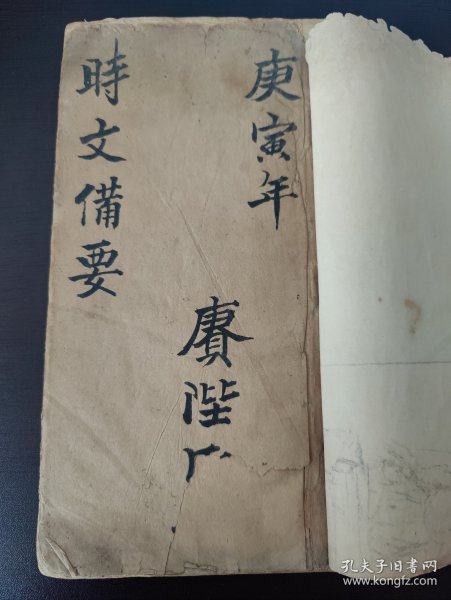 庚寅年
賡陛
時文備要
孔夫子旧书网
www.kongfz.com